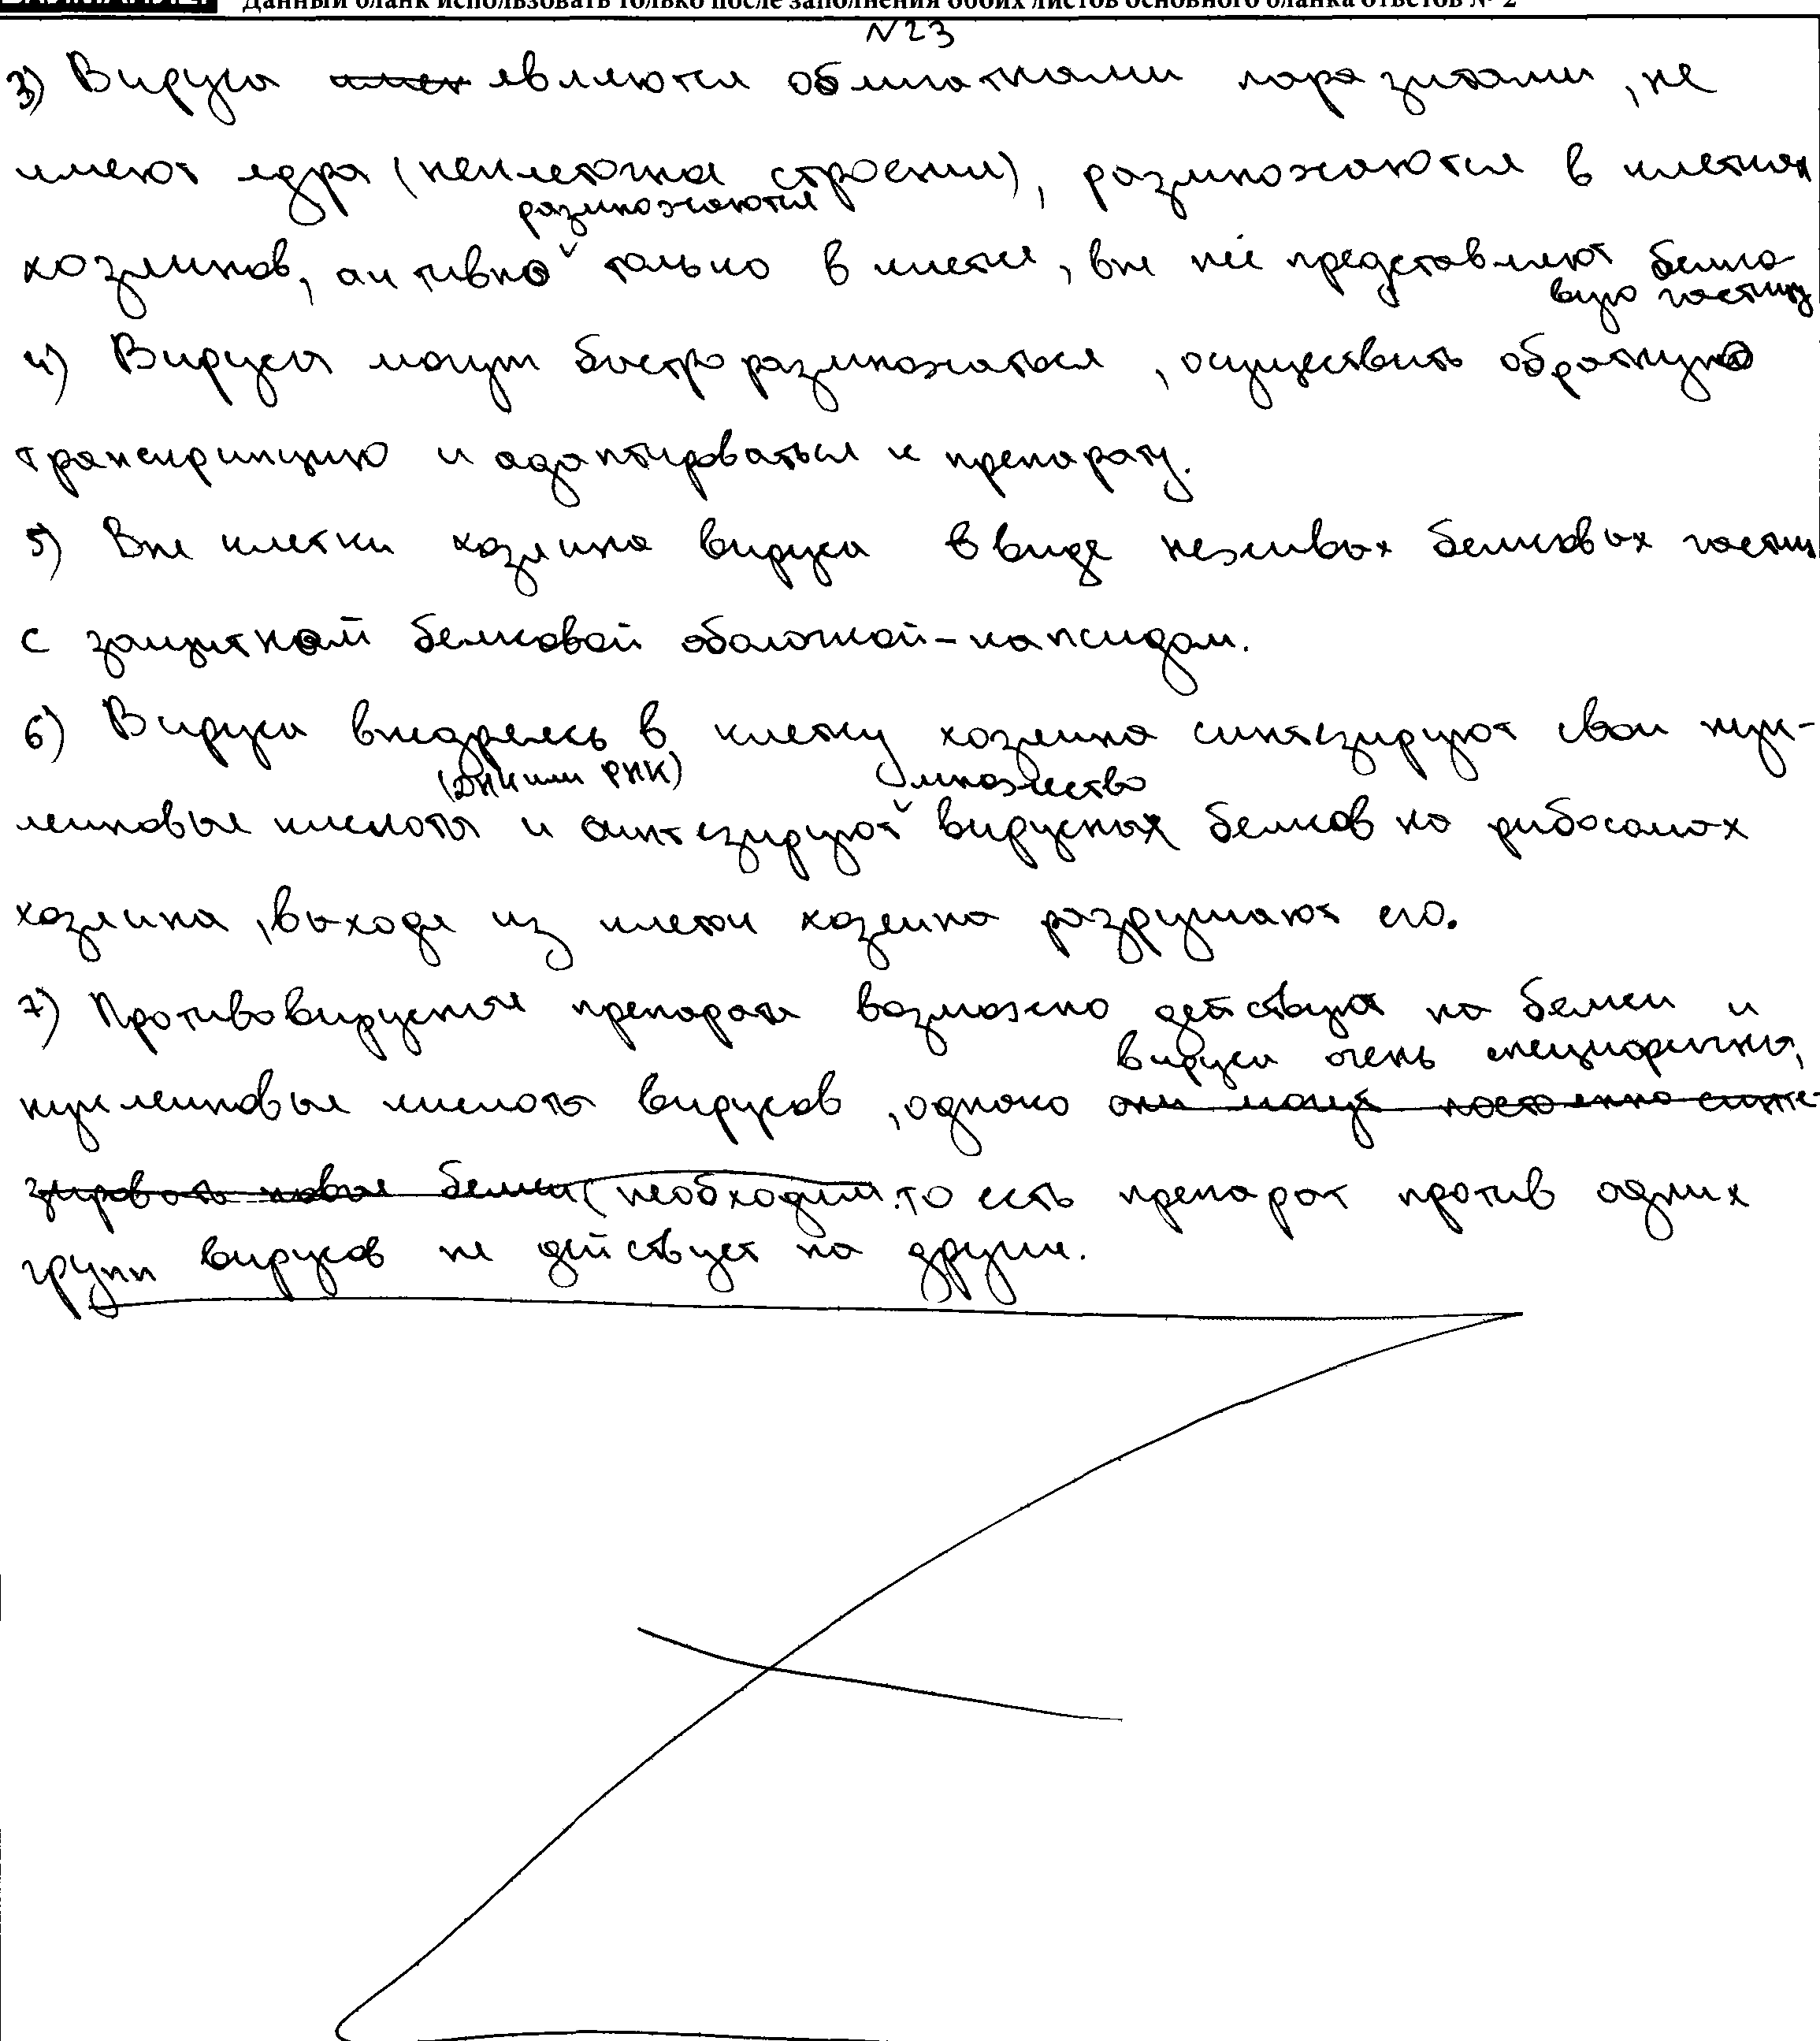 Данный бланк использовать только после заполнения обоих листов основного бланка ответов № 2
N23
3) Вирусы являются облигатными паразитами, не
имеют ядра (неклеточное строение), размножаются в клетках
размножаются
хозяинов, активно только в клетке, вне неё представляют белко-
вую частицу
4) Вирусы могут быстро размножаться, осуществить обратную
транскрипцию и адаптироваться к препарату.
5) Вне клетки хозяина вирусы в виде неживых белковых частиц
с защитной белковой оболочкой-капсидом.
6) Вирусы внедряясь в клетку хозяина синтезируют свои нук-
(ДНК или РНК) множество
леиновые кислоты и синтезируют вирусных белков на рибосомах
хозяина, выходя из клетки хозяина разрушают его.
7) Противовирусные препараты возможно действуют на белки и
вирусы очень специфичны,
нуклеиновые кислоты вирусов, однако они могут постоянно синте-
зировать новые белки (необходим. то есть препарат против одних
групп вирусов не действует на другие.